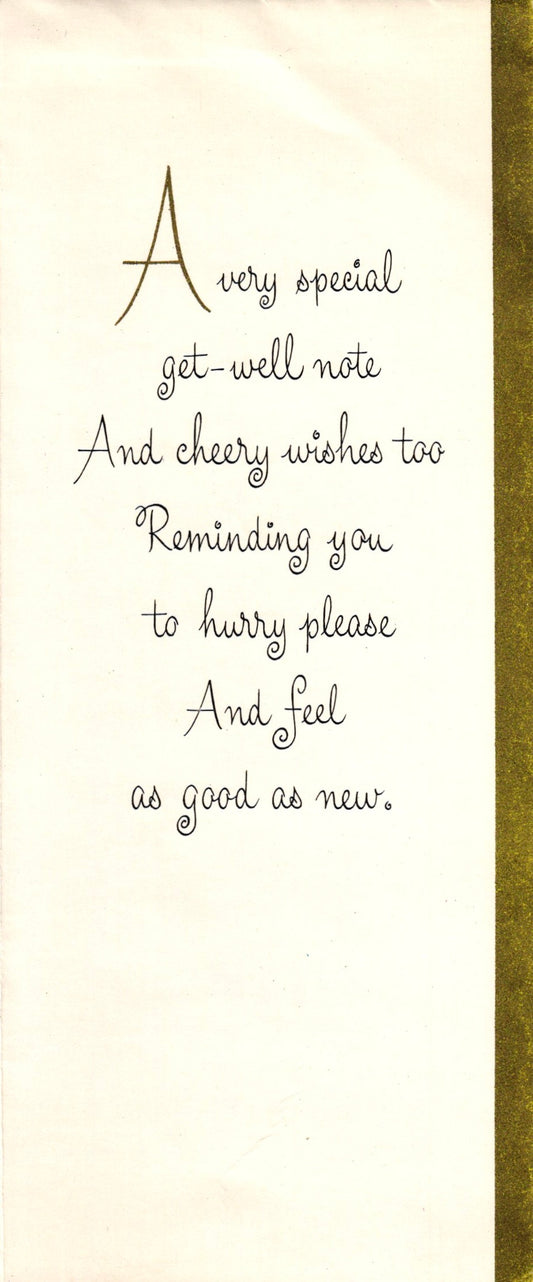 A very special
get-well note
And cheery wishes too
Reminding you
to hurry please
And feel
as good as new.